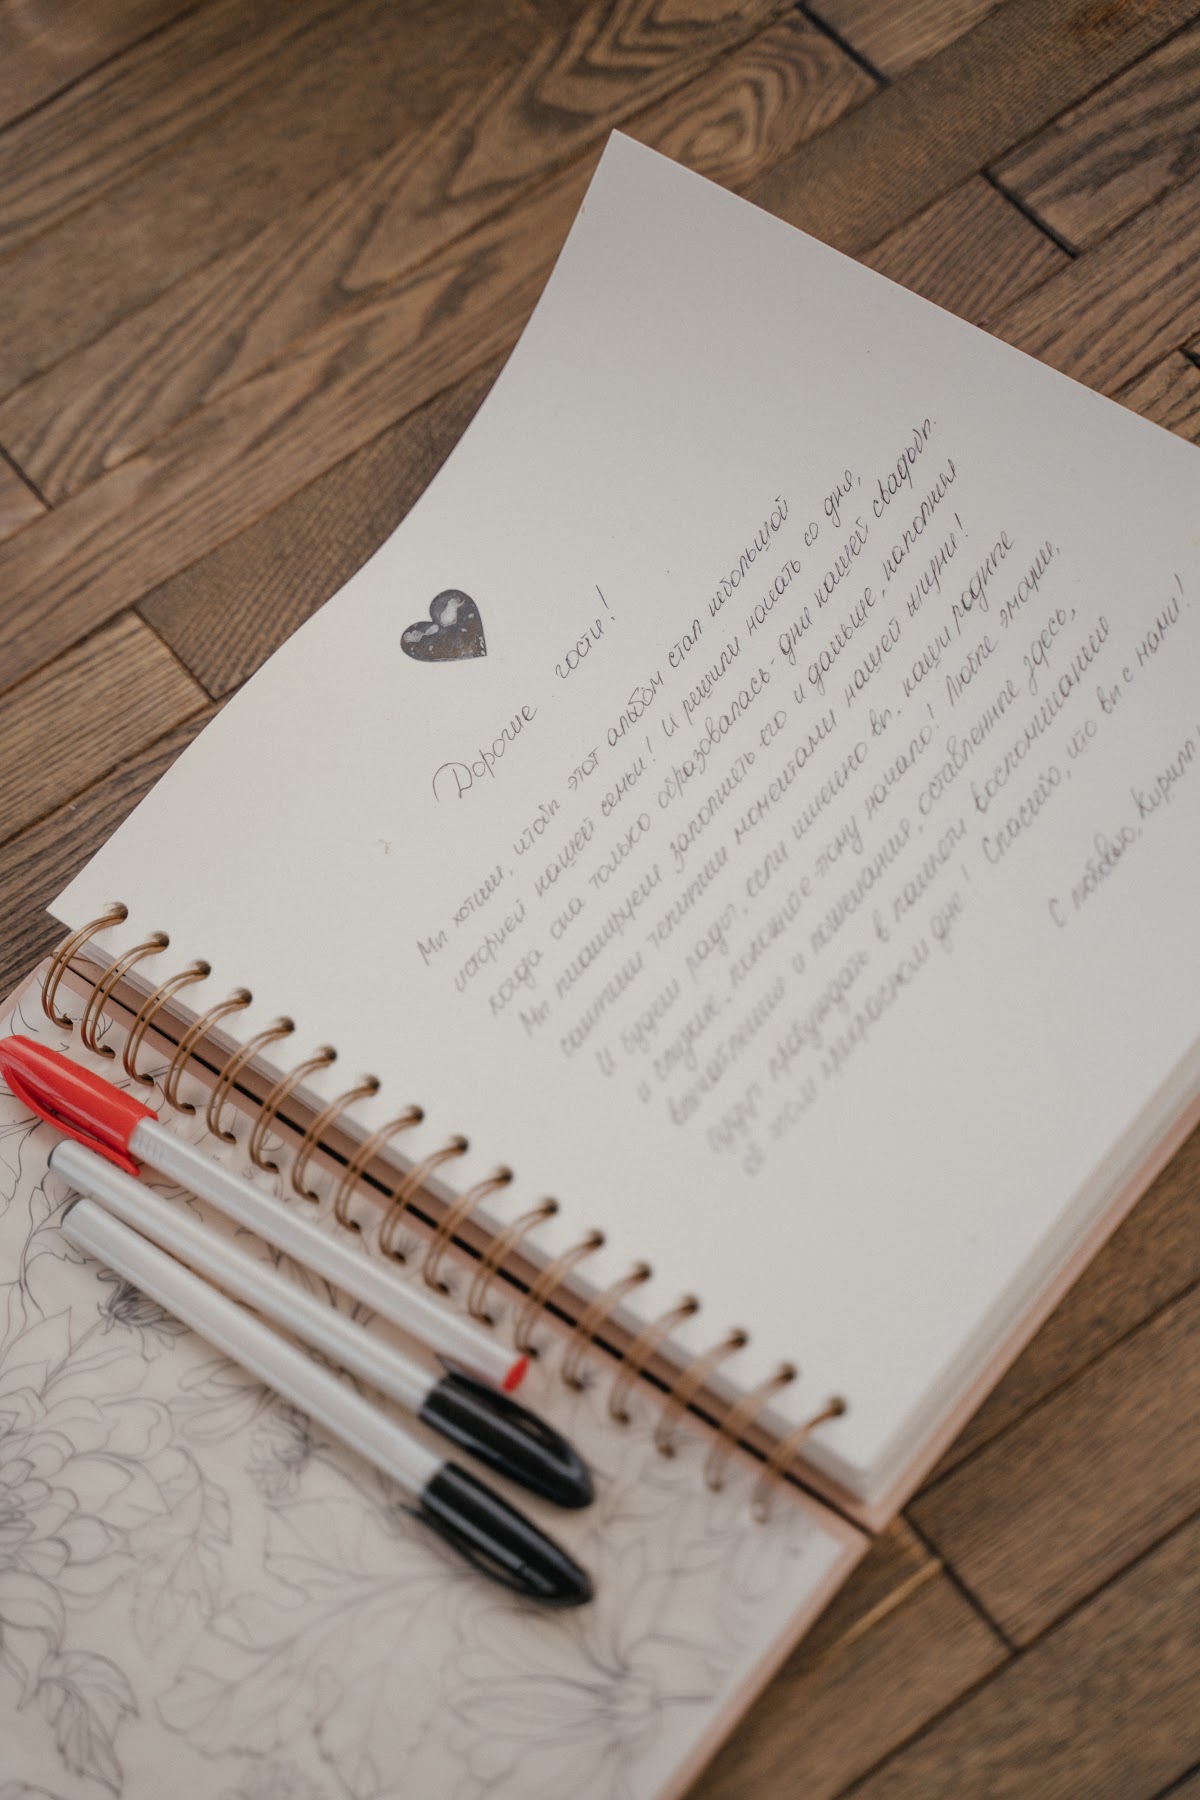 Дорогие гости!
Мы хотим, чтобы этот альбом стал небольшой
историей нашей семьи! И решили начать со дня,
когда она только образовалась - дня нашей свадьбы.
Мы планируем заполнять его и дальше, наполняя
самыми теплыми моментами нашей жизни!
И будем рады, если именно вы, наши родные
и близкие, положите этому начало! Любые эмоции,
впечатления и пожелания, оставленные здесь,
будут пробуждать в памяти воспоминания
об этом прекрасном дне! Спасибо, что вы с нами!
С любовью, Кирилл